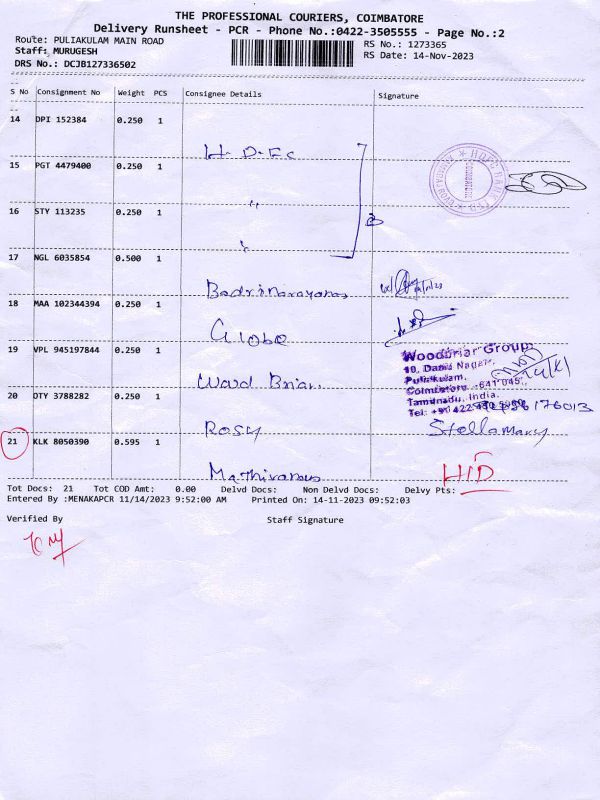 THE PROFESSIONAL COURIERS, COIMBATORE
Delivery Runsheet - PCR - Phone No.:0422-3505555 - Page No.:2
Route: PULIAKULAM MAIN ROAD
RS No.: 1273365
Staff: MURUGESH
RS Date: 14-Nov-2023
DRS No.: DCJB127336502
S No Consignment No Weight PCS Consignee Details Signature
14 DPI 152384 0.250 1
H.D.F.C
15 PGT 4479400 0.250 1
"
16 STY 113235 0.250 1
"
3
17 NGL 6035854 0.500 1
Badrinarayanan
18 MAA 102344394 0.250 1
Globe
19 VPL 945197844 0.250 1
Wood Briar
Woodbriar Group
10, Damu Nagar,
Puliakulam,
Coimbatore - 641 045,
Tamilnadu, India.
Tel: +91 422
20 DTY 3788282 0.250 1
Rosy
Stellamary
21 KLK 8050390 0.595 1
Mathivanan
H/D
Tot Docs: 21 Tot COD Amt: 0.00 Delvd Docs: Non Delvd Docs: Delvy Pts:
Entered By :MENAKAPCR 11/14/2023 9:52:00 AM Printed On: 14-11-2023 09:52:03
Verified By Staff Signature